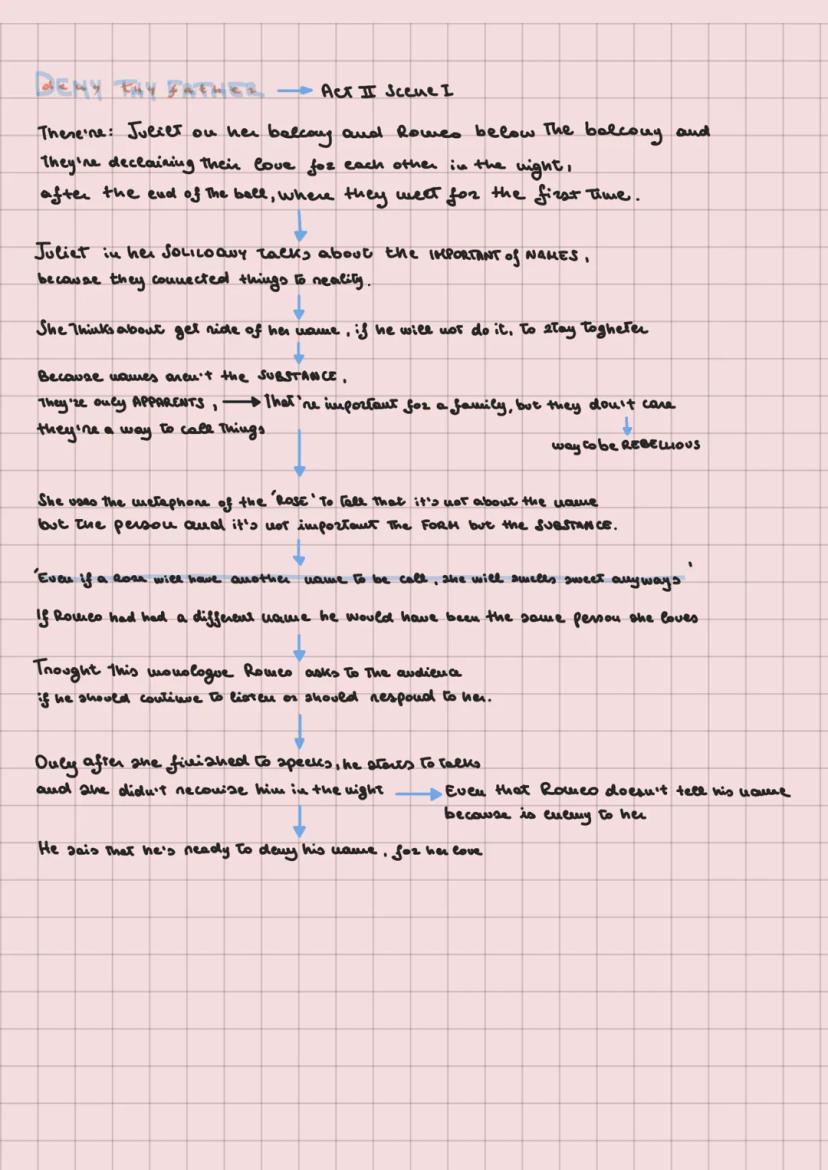 DENY THY FATHER → Act II Scene I
There're: Juliet on her balcony and Romeo below the balcony and
they're declairing their love for each other in the night,
after the end of the ball, where they meet for the first time.
Juliet in her SOLILOQUY talks about the IMPORTANT of NAMES,
because they connected things to reality.
She thinks about get ride of her name, if he will not do it, to stay togheter
Because names aren't the SUBSTANCE,
They're only APPARENTS, → That're important for a family, but they don't care
they're a way to call things
way to be REBELLIOUS
She uses the metaphone of the 'ROSE' to tell that it's not about the name
but the person and it's not important the FORM but the SUBSTANCE.
'Even if a Rose will have another name to be call, she will smells sweet anyways'
If Romeo had had a different name he would have been the same person she loves
Trought this monologue Romeo asks to the audience
if he should continue to listen or should respond to her.
Only after she finished to speeks, he starts to talks
and she didn't reconise him in the night → Even that Romeo doesn't tell his name
because is enemy to her
He sais that he's ready to deny his name, for her love